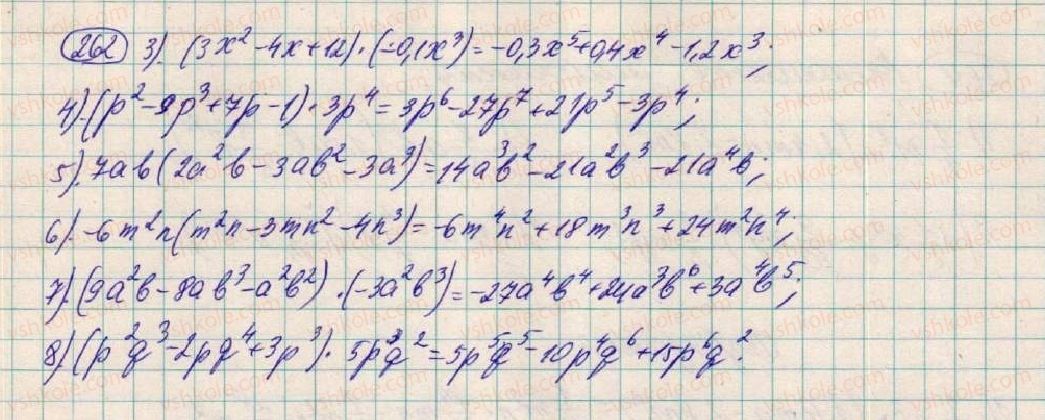 262 3). (3x² - 4x + 12) · (-0,1x³) = -0,3x⁵ + 0,4x⁴ - 1,2x³;
4). (p² - 9p³ + 7p - 1) · 3p⁴ = 3p⁶ - 27p⁷ + 21p⁵ - 3p⁴;
5). 7ab(2a²b - 3ab² - 3a³) = 14a³b² - 21a²b³ - 21a⁴b;
6). -6m²n(m²n - 3mn² - 4n³) = -6m⁴n² + 18m³n³ + 24m²n⁴;
7). (9a²b - 8ab³ - a²b²) · (-3a²b³) = -27a⁴b⁴ + 24a³b⁶ + 3a⁴b⁵;
8). (p²q³ - 2pq⁴ + 3p³) · 5p³q² = 5p⁵q⁵ - 10p⁴q⁶ + 15p⁶q².